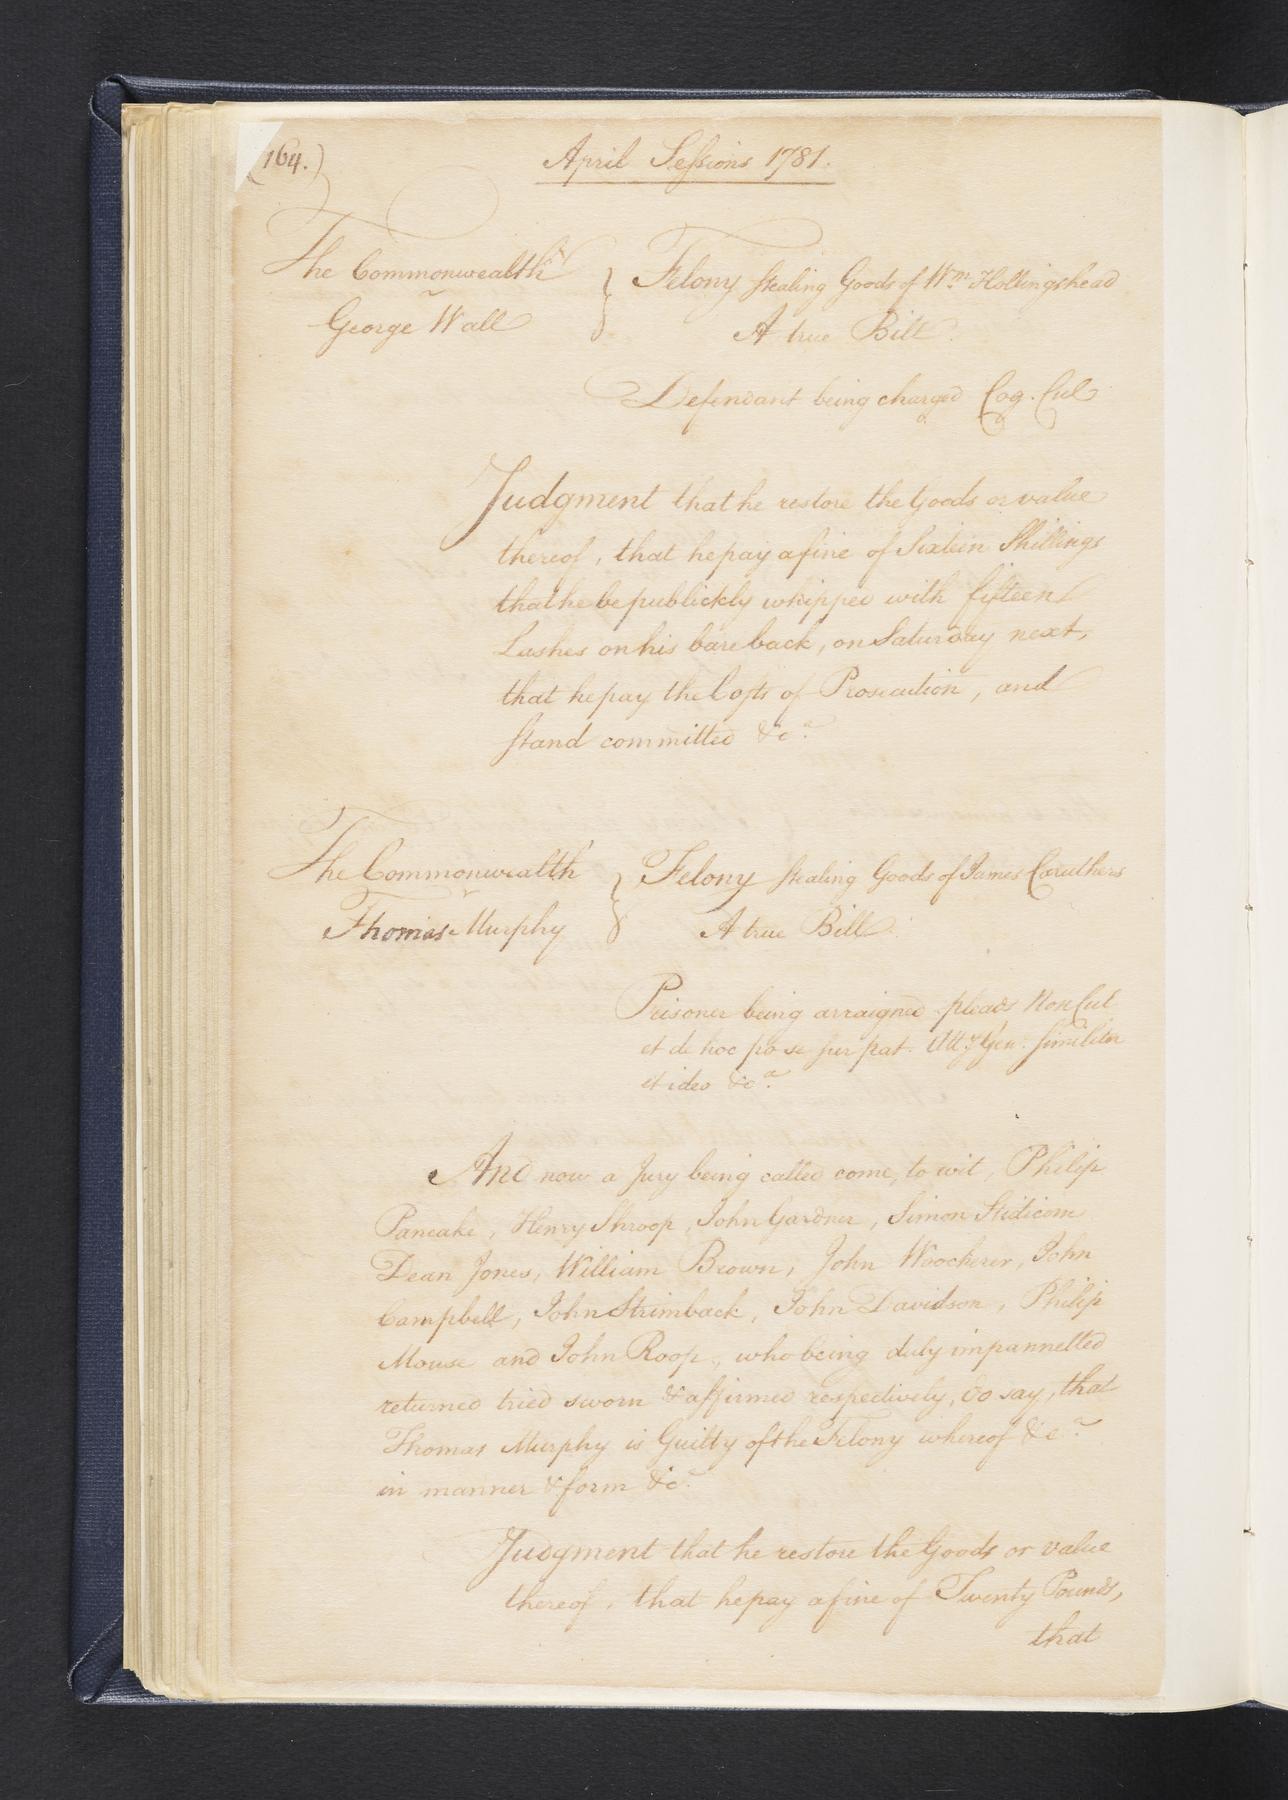 (164.)
April Sessions 1781.
The Commonwealth
v
George Wall
Felony stealing Goods of Wm. Hollingshead
A true Bill.
Defendant being charged Cog. Cul
Judgment that he restore the Goods or value
thereof, that he pay a fine of Sixteen Shillings
that he be publickly whipped with fifteen
Lashes on his bare back, on Saturday next,
that he pay the Costs of Prosecution, and
stand committed &ca.
The Commonwealth
v
Thomas Murphy
Felony stealing Goods of James Caruthers
A true Bill.
Prisoner being arraigned pleads Non Cul
et de hoc po se sur pat. Atty. Gen. similitr
et ideo &ca.
And now a Jury being called come, to wit, Philip
Pancake, Henry Shroop, John Gardner, Simon Stidicom
Dean Jones, William Brown, John Woocherer, John
Campbell, John Strimback, John Davidson, Philip
Mouse and John Roop, who being duly impannelled
returned tried sworn & affirmed respectively, do say, that
Thomas Murphy is Guilty of the Felony whereof &ca.
in manner & form &ca.
Judgment that he restore the Goods or value
thereof, that he pay a fine of Twenty Pounds,
that